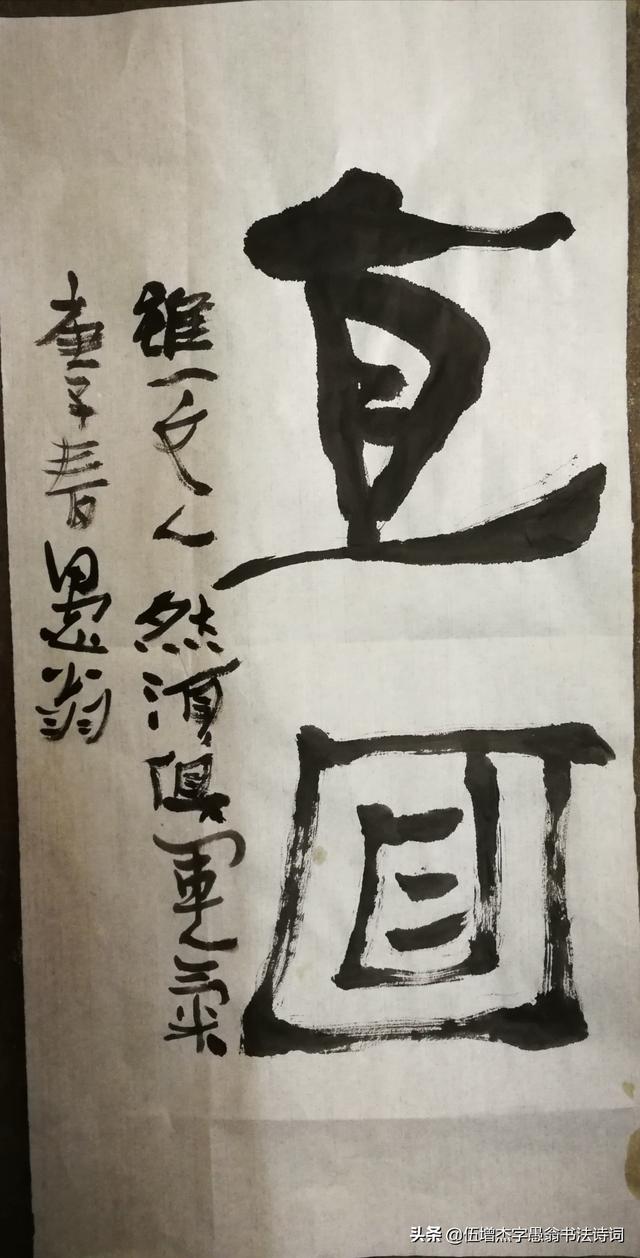 直面
雖一文人然須俱軍氣
庚子春愚翁
头条 @伍增杰字愚翁书法诗词